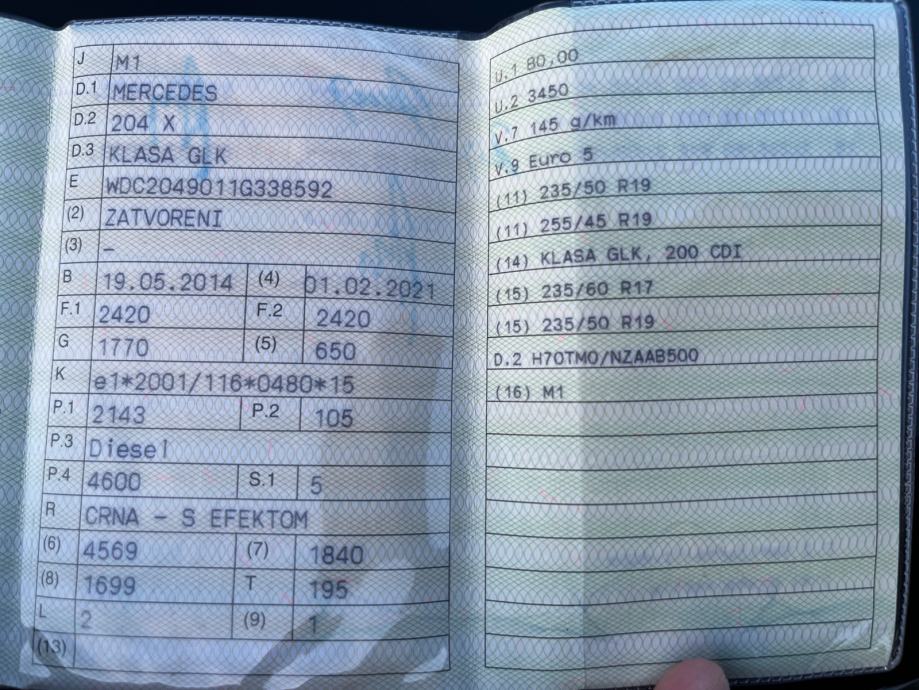 J M1
D.1 MERCEDES
D.2 204 X
D.3 KLASA GLK
E WDC2049011G338592
(2) ZATVORENI
(3) –
B 19.05.2014 (4) 01.02.2021
F.1 2420 F.2 2420
G 1770 (5) 650
K e1*2001/116*0480*15
P.1 2143 P.2 105
P.3 Diesel
P.4 4600 S.1 5
R CRNA – S EFEKTOM
(6) 4569 (7) 1840
(8) 1699 T 195
L 2 (9) 1
(13)
U.1 80,00
U.2 3450
V.7 145 g/km
V.9 Euro 5
(11) 235/50 R19
(11) 255/45 R19
(14) KLASA GLK, 200 CDI
(15) 235/60 R17
(15) 235/50 R19
D.2 H70TM0/NZAAB500
(16) M1